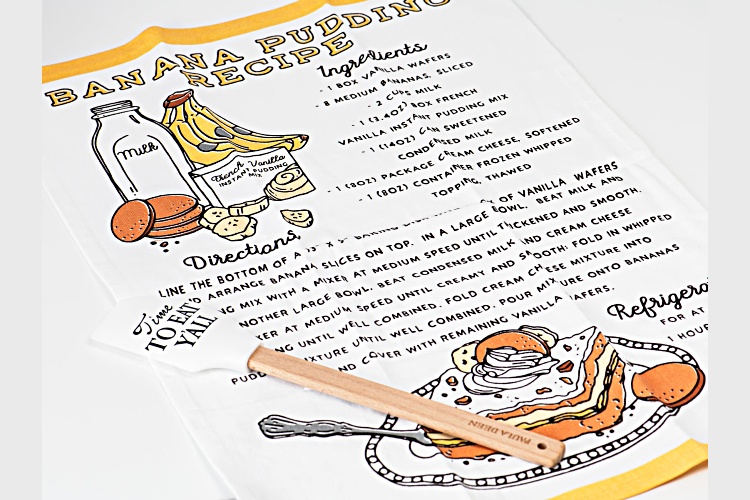 BANANA PUDDING
RECIPE
Ingredients
- 1 BOX VANILLA WAFERS
- 8 MEDIUM BANANAS, SLICED
- 2 CUPS MILK
- 1 (3.4OZ) BOX FRENCH
VANILLA INSTANT PUDDING MIX
- 1 (14OZ) CAN SWEETENED
CONDENSED MILK
- 1 (8OZ) PACKAGE CREAM CHEESE, SOFTENED
- 1 (8OZ) CONTAINER FROZEN WHIPPED
TOPPING, THAWED
Milk
French Vanilla
INSTANT PUDDING
MIX
Directions
LINE THE BOTTOM OF A BAKING OF VANILLA WAFERS
ARRANGE BANANA SLICES ON TOP. IN A LARGE BOWL, BEAT MILK AND
MIX WITH A MIXER AT MEDIUM SPEED UNTIL THICKENED AND SMOOTH.
NOTHER LARGE BOWL, BEAT CONDENSED MILK AND CREAM CHEESE
XER AT MEDIUM SPEED UNTIL CREAMY AND SMOOTH. FOLD IN WHIPPED
ING UNTIL WELL COMBINED. FOLD CREAM CHEESE MIXTURE INTO
PUDD MIXTURE UNTIL WELL COMBINED. POUR MIXTURE ONTO BANANAS
ND COVER WITH REMAINING VANILLA WAFERS.
Time
TO EAT
Y'ALL
Refrigera
FOR AT
1 HOUR
PAULA DEEN